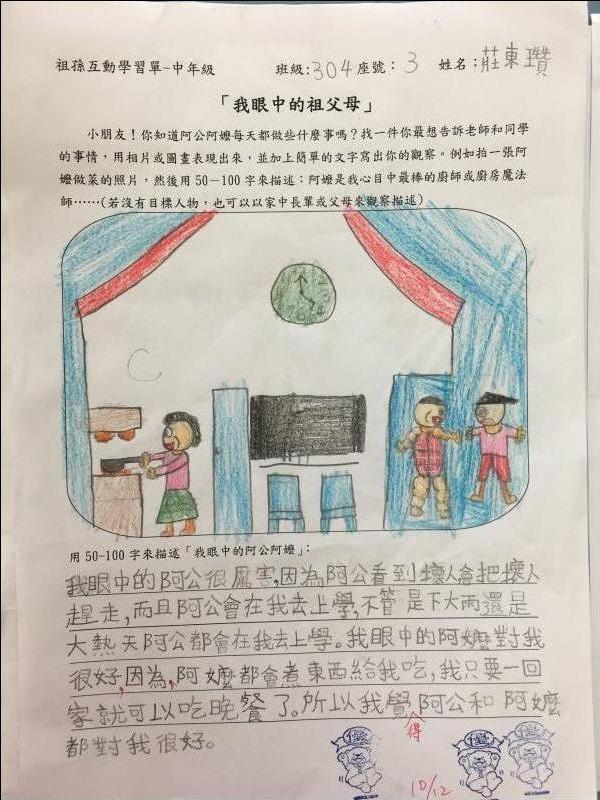 祖孫互動學習單-中年級 班級:304 座號:3 姓名:莊東瓚
「我眼中的祖父母」
小朋友!你知道阿公阿嬤每天都做些什麼事嗎?找一件你最想告訴老師和同學
的事情,用相片或圖畫表現出來,並加上簡單的文字寫出你的觀察。例如拍一張阿
嬤做菜的照片,然後用50-100字來描述:阿嬤是我心目中最棒的廚師或廚房魔法
師……(若沒有目標人物,也可以以家中長輩或父母來觀察描述)
用50-100字來描述「我眼中的阿公阿嬤」:
我眼中的阿公很厲害,因為阿公看到壞人會把壞人
趕走,而且阿公會在我去上學,不管是下大雨還是
大熱天阿公都會在我去上學。我眼中的阿嬤對我
很好,因為,阿嬤都會煮東西給我吃,我只要一回
家就可以吃晚餐了。所以我覺得阿公和阿嬤
都對我很好。
10/12